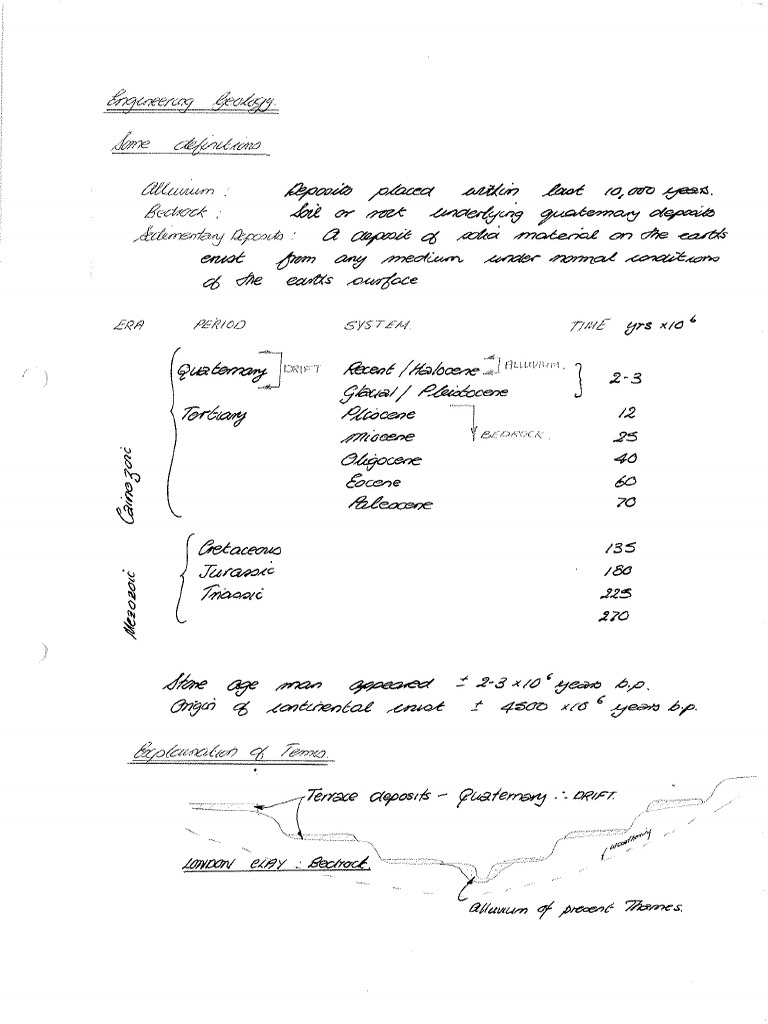 Engineering Geology.
Some definitions
Alluvium : Deposits placed within last 10,000 years.
Bedrock : Soil or rock underlying quaternary deposits
Sedimentary Deposits : A deposit of solid material on the earths
crust from any medium under normal conditions
of the earths surface
ERA PERIOD SYSTEM. TIME yrs x10⁶
Quaternary DRIFT Recent / Halocene ALLUVIUM.
Glacial / Pleistocene 2-3
Tertiary Pliocene 12
Miocene BEDROCK. 25
Oligocene 40
Eocene 60
Paleocene 70
Cainozoic
Cretaceous 135
Jurassic 180
Triassic 225
270
Mezozoic
Stone age man appeared ± 2-3 x10⁶ years b.p.
Origin of continental crust ± 4500 x10⁶ years b.p.
Explaination of Terms.
Terrace deposits - Quaternary ∴ DRIFT.
weathering
LONDON CLAY : Bedrock.
Alluvium of present Thames.